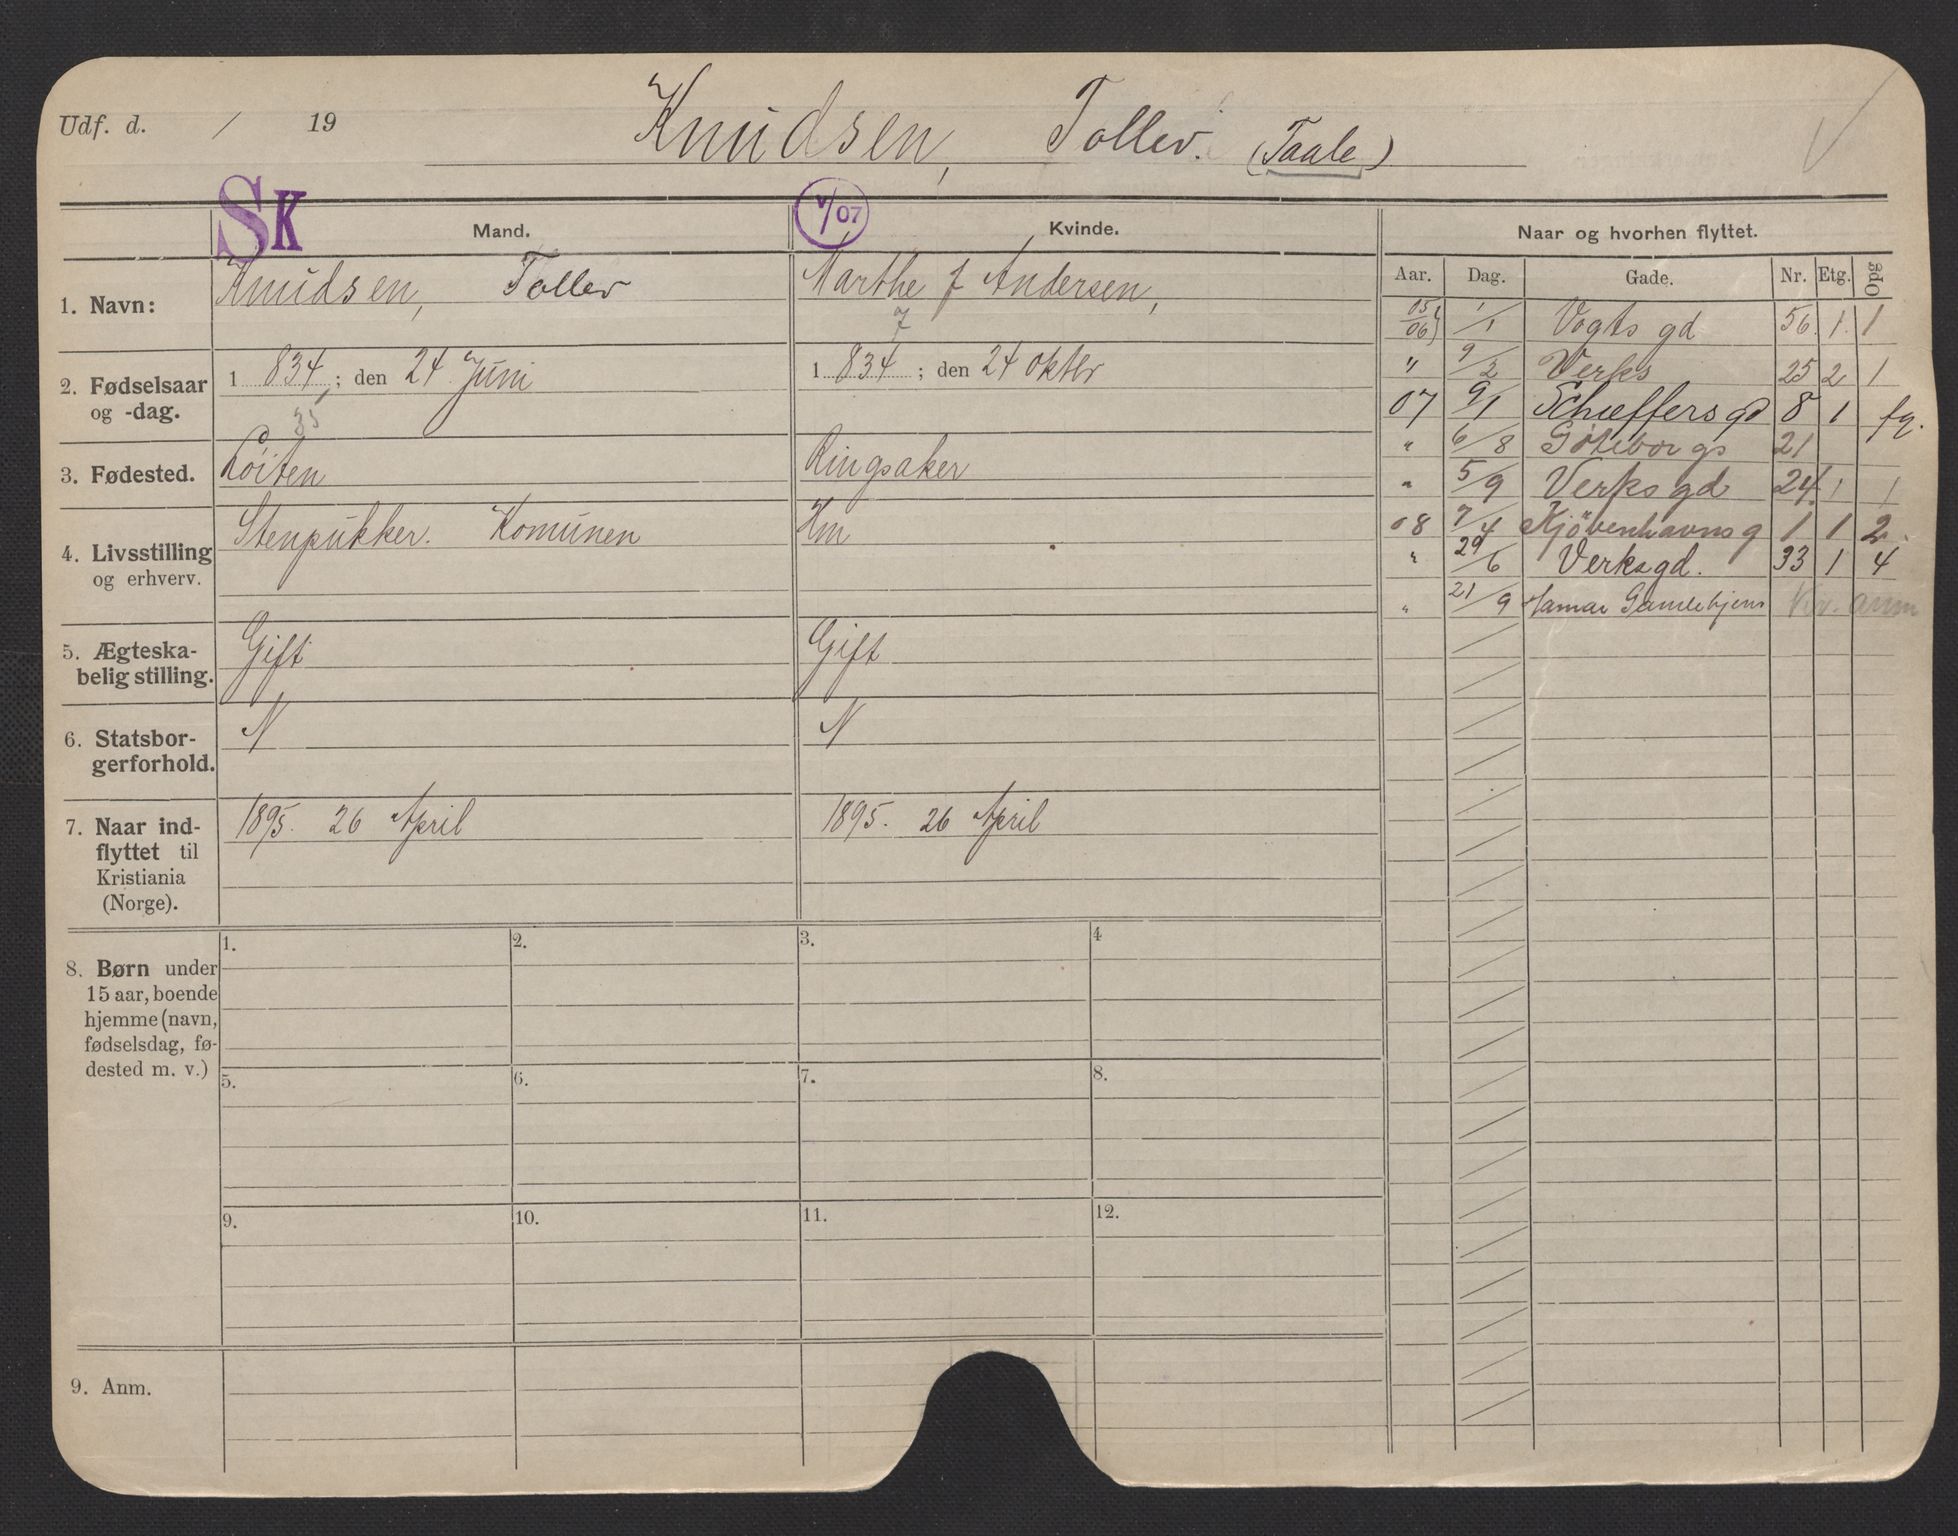 Udf. d. / 19
Knudsen, Tollev. (Taale)
SK
V/07
Mand. Kvinde. Naar og hvorhen flyttet.
Aar. Dag. Gade. Nr. Etg. Opg
1. Navn: Knudsen, Tollev Marthe f Andersen,
7
2. Fødselsaar og -dag. 1 834 ; den 24 Juni 1 834 ; den 24 oktbr
35
3. Fødested. Löiten Ringsaker
4. Livsstilling og erhverv. Stenpukker. Komunen Hm
5. Ægteska-
belig stilling. Gift Gift
6. Statsbor-
gerforhold. N N
7. Naar ind-
flyttet til
Kristiania
(Norge). 1895. 26 April 1895. 26 April
05/06 1/1 Vogts gd 56. 1. 1
" 9/2 Verks 25 2 1
07 9/1 Schæffers gd 8 1 fg.
" 6/8 Göteborgs 21
" 5/9 Verksgd 24 1 1
08 7/4 Kjöbenhavnsg 1 1 2.
" 29/6 Verksgd. 33 1 4
" 21/9 Hamar Gamlehjem
8. Børn under
15 aar, boende
hjemme (navn,
fødselsdag, fø-
dested m. v.)
1. 2. 3. 4
5. 6. 7. 8.
9. 10. 11. 12.
9. Anm.